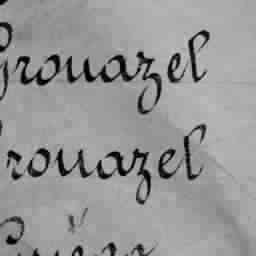 Grouazel
Grouazel